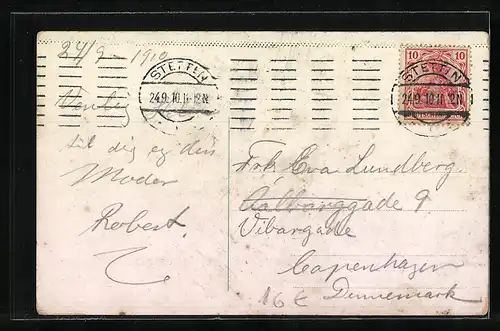 24/9 - 1910
STETTIN
24.9.10.11-12N.
10 10
STETTIN
24.9.10.11-12N.
til dig og din
Moder
Robert.
Frk. Eva Lundberg.
Aalborggade 9
Vibargade
Copenhagen
Dennemark
16 €